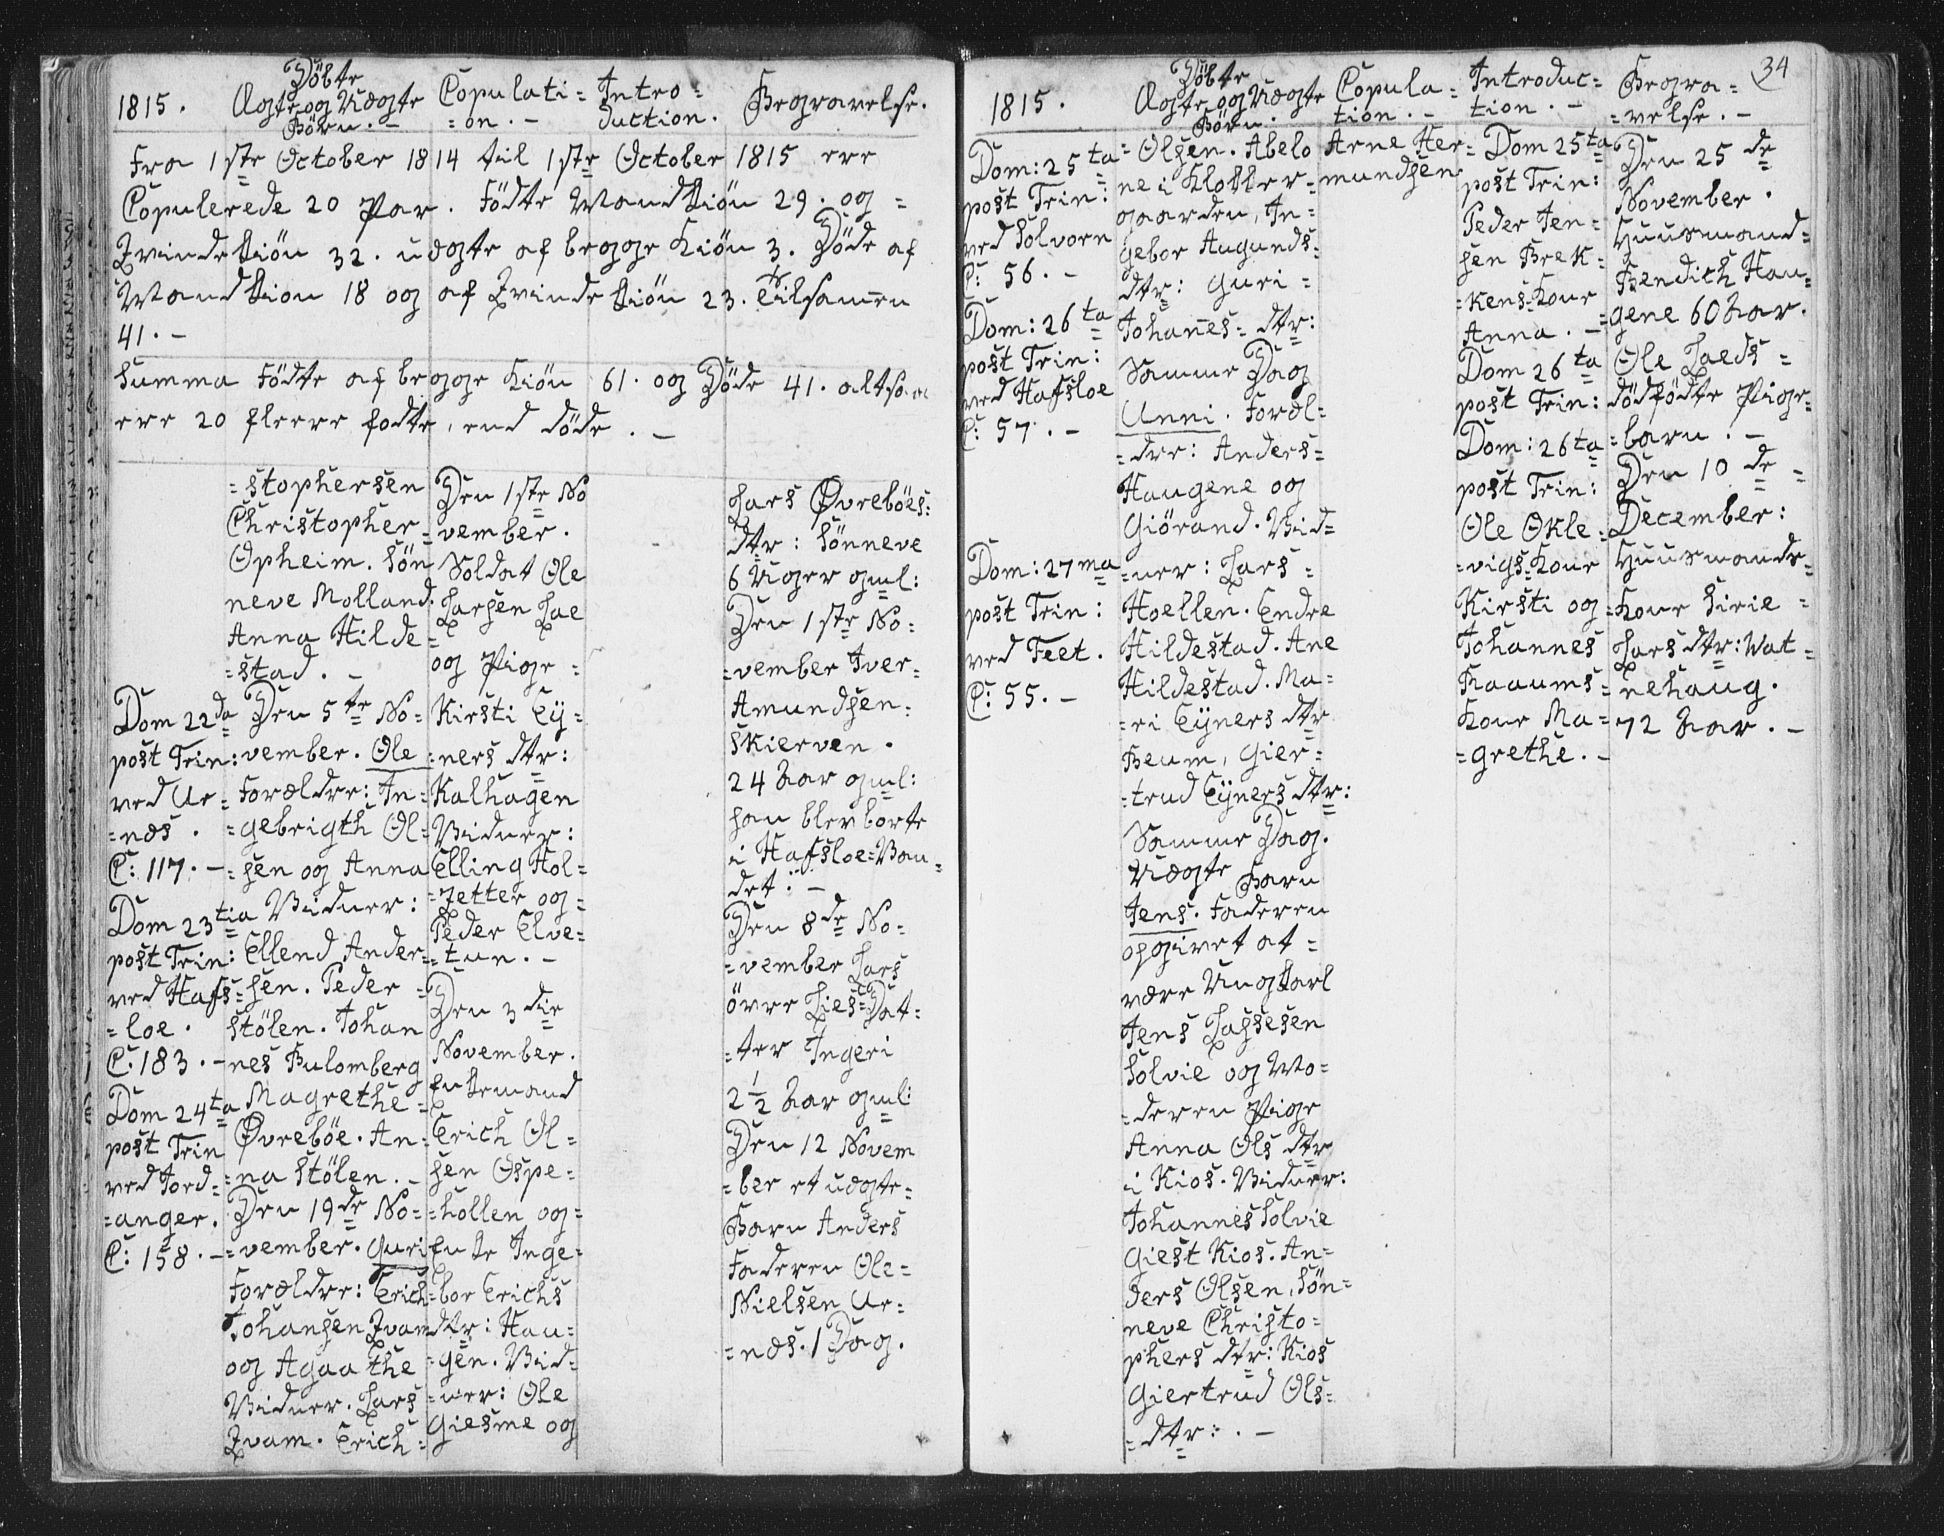 1815.
Døbte
Ægte og Uægte
Børn. -
Copulati=
=on. -
Intro=
duction.
Begravelse.
Fra 1ste October 1814 til 1ste October 1815 ere
Copulerede 20 Par. Födte Mandkiön 29. og =
Qvindekiön 32. uægte af begge Kiön 3. Döde af
Mandkion 18 og af Qvindekiön 23. Tilsamen
41. -
Summa Födte af begge Kiön 61. og Döde 41. altsaa
ere 20 fleere fodte, end döde. -
Dom 22da
post Trin:
ved Ur=
=næs.
C: 117. -
Dom 23tia
post Trin:
ved Hafs=
=loe.
C: 183. -
Dom 24ta
post Trin
ved Jord=
=anger.
C: 158. -
=stophersen
Christopher
Opheim. Sön
neve Molland.
Anna Hilde=
=stad. -
Den 5te No=
vember. Ole
Forældre: In=
=gebrigth Ol=
=sen og Anna
Vidner:
Ellend Ander=
=sen. Peder
Stölen. Johan
nes Bulomberg
Magrethe
Øvreböe. An=
=na Stölen. -
Den 19de No=
=vember. Guri
Forældre: Erich
Johansen Qvam
og Agaathe
Vidner. Lars
Qvam. Erich=
Den 1ste No
=vember.
Soldat Ole
Larsen Lae
og Pige =
Kirsti Ey=
=ners dtr:
Kalhagen
Vidner:
Elling Hol=
=zetter og=
Peder Elve=
=tun. -
Den 3die
November.
Enkemand
Erich Ol=
sen Ospe=
=hollen og=
Enke Inge=
=bor Erichs
dtr: Hau=
=gen. Vid=
=ner: Ole
Giesme og
Lars Øvreböes=
dtr: Sönneve
6 Uger gml:
Den 1ste No=
=vember Iver=
Amundsen=
Skierven.
24 Aar gml:
han blev borte
i Hafsloe=Van=
det: -
Den 8de No=
=vember Lars
övre Lies=Dat=
=ter Ingeri
2 1/2 Aar gml:
Den 12 Novem
=ber et uægte=
Barn Anders
Faderen Ole=
Nielsen Ur=
=næs. 1 Dag.
34
1815.
Døbte
Ægte og Uægte
Börn.
Copula=
tion. -
Introduc=
tion. -
Begra=
=velse. -
Dom: 25ta
post Trin:
ved Solvorn
C: 56. -
Dom: 26ta
post Trin:
ved Hafsloe
C: 57. -
Dom: 27ma
post Trin:
ved Feet.
C: 55. -
=Olsen. Abelo
ne i Kloker=
gaarden, In=
gebor Augunds=
dtr: Guri=
Johanes= dtr:
Samme Dag
Unni. Foræl=
=dre: Anders=
Haugene og
Giörand. Vid=
=ner: Lars=
Hoellen. Endre
Hildestad. Ane
Hildestad. Ma=
=ri Eyners dtr
Beum, Gier=
=trud Eyners dtr:
Samme Dag.
Uægte Barn
Jens. Faderen
opgivet at=
være Ungkarl
Jens Lassesen
Solvie og Mo=
=deren Pige
Anna Ols dtr
i Kios. Vidner:
Johannes Solvie
Giest Kios. An=
ders Olsen, Sön=
neve Christo=
phers dtr: Kios
Giertrud Ols=
=dtr:. -
Arne Her=
mundsen
Dom 25ta
post Trin:
Peder Jen=
sen Brek=
=kens=Kone
Anna. -
Dom 26ta
post Trin:
Dom: 26ta
post Trin:
Ole Okle=
=vigs=Kone
Kirsti og
Johannes
Raaums=
Kone Ma=
=grethe. -
Den 25de
November.
Huusmand=
Bendich Hau=
=gene 60 Aar.
Ole Laeds=
dödfödte Pige=
=barn. -
Den 10de =
December:
Huusmands=
=Kone Sirie=
Lars dtr: Wat=
nehaug.
72 Aar. -